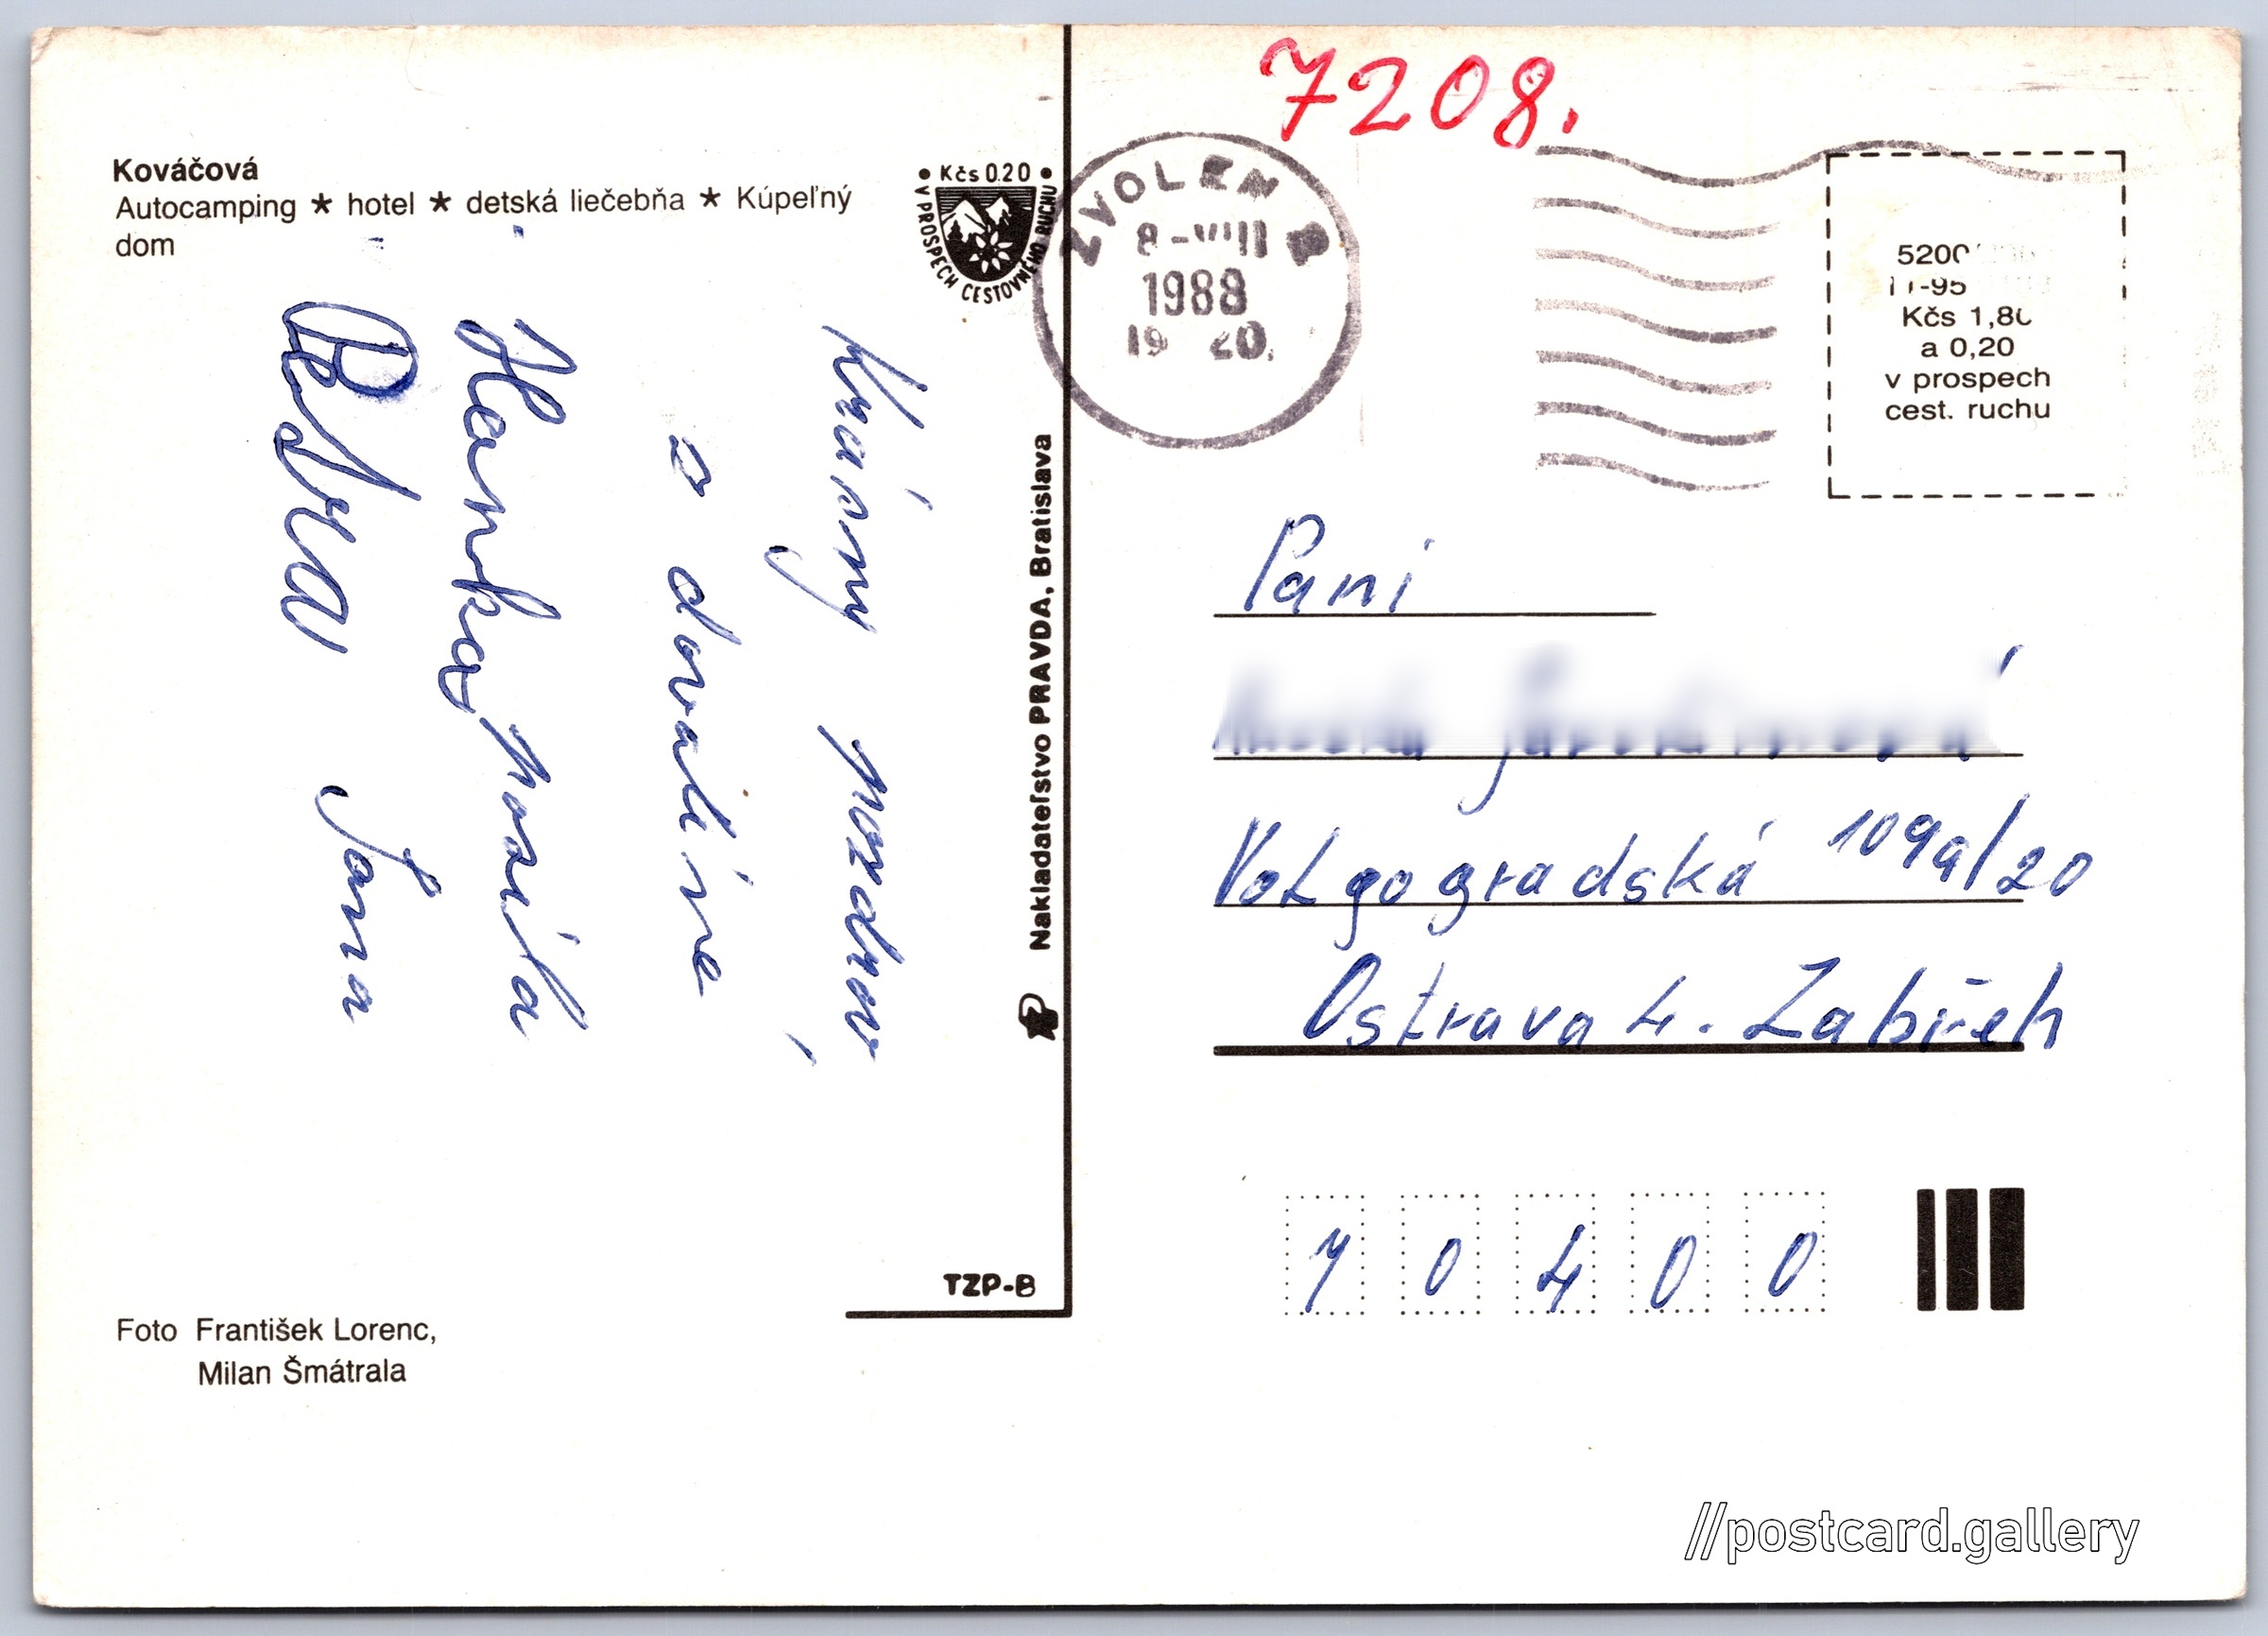 7208.
Kováčová
Autocamping ★ hotel ★ detská liečebňa ★ Kúpeľný
dom
• Kčs 0.20 •
V PROSPECH CESTOVNÉHO RUCHU
ZVOLEN
8-VIII
1988
19 20.
5200
11-95
Kčs 1,80
a 0,20
v prospech
cest. ruchu
Krásný pozdrav
z dovolené
Hanka
Petra Jana
Nakladateľstvo PRAVDA, Bratislava
Pani
Volgogradská 109a/20
Ostrava 4. Zabřeh
70400
TZP-B
Foto František Lorenc,
Milan Šmátrala
//postcard.gallery